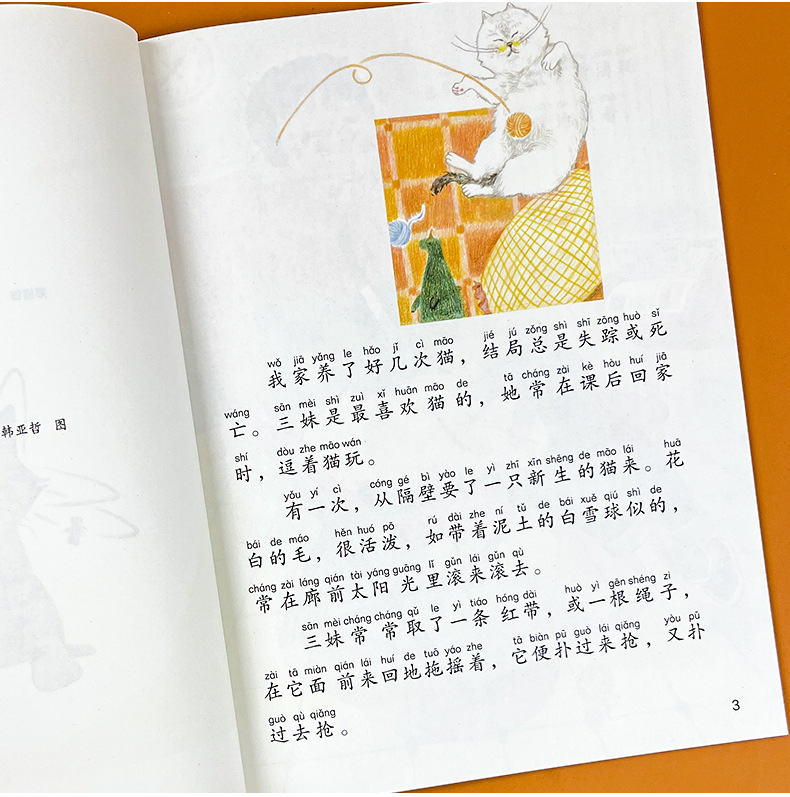 韩亚哲 图
wǒ jiā yǎng le hǎo jǐ cì māo jié jú zǒng shì shī zōng huò sǐ
我家养了好几次猫，结局总是失踪或死
wáng sān mèi shì zuì xǐ huān māo de tā cháng zài kè hòu huí jiā
亡。三妹是最喜欢猫的，她常在课后回家
shí dòu zhe māo wán
时，逗着猫玩。
yǒu yí cì cóng gé bì yào le yì zhī xīn shēng de māo lái huā
有一次，从隔壁要了一只新生的猫来。花
bái de máo hěn huó pō rú dài zhe ní tǔ de bái xuě qiú shì de
白的毛，很活泼，如带着泥土的白雪球似的，
cháng zài láng qián tài yáng guāng lǐ gǔn lái gǔn qù
常在廊前太阳光里滚来滚去。
sān mèi cháng cháng qǔ le yì tiáo hóng dài huò yì gēn shéng zi
三妹常常取了一条红带，或一根绳子，
zài tā miàn qián lái huí de tuō yáo zhe tā biàn pū guò lái qiǎng yòu pū
在它面前来回地拖摇着，它便扑过来抢，又扑
guò qù qiǎng
过去抢。
3